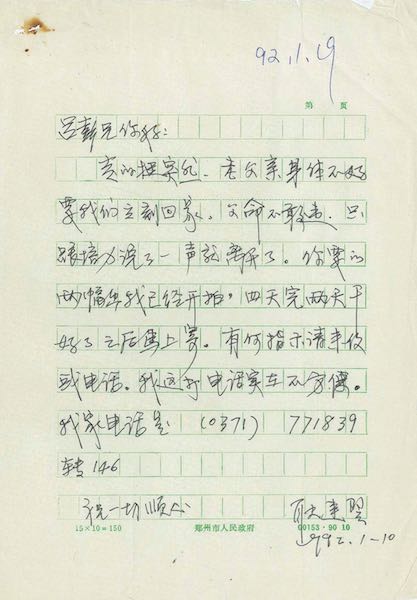 92.1.19
第 页
吕彭兄你好:
老父亲身体不好
要我们立刻回家。父命不敢违,只
跟培力说了一声就离开了。你要的
两幅我已经开始。四天完两天干
好了之后马上寄。有何指示请来信
或电话。我这打电话实在不方便。
我家电话是 (0371) 771839
转146
祝一切顺心
1992.1-10
15×10=150 郑州市人民政府 00153·90 10